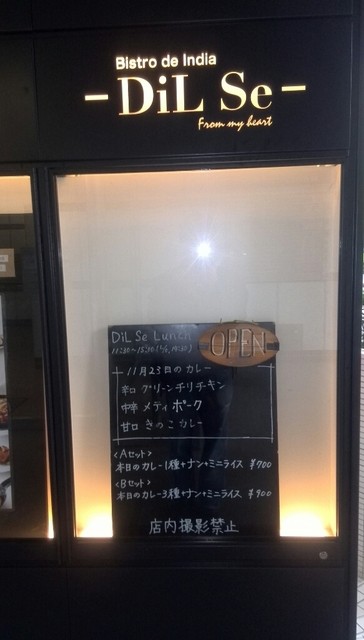 Bistro de India
-DiL Se-
From my heart
DiL Se Lunch
OPEN
11月23日のカレー
辛口 グリーンチリチキン
中辛 メティ ポーク
甘口 きのこカレー
<Aセット>
本日のカレー1種+ナン+ミニライス ¥700
<Bセット>
本日のカレー3種+ナン+ミニライス ¥900
店内撮影禁止